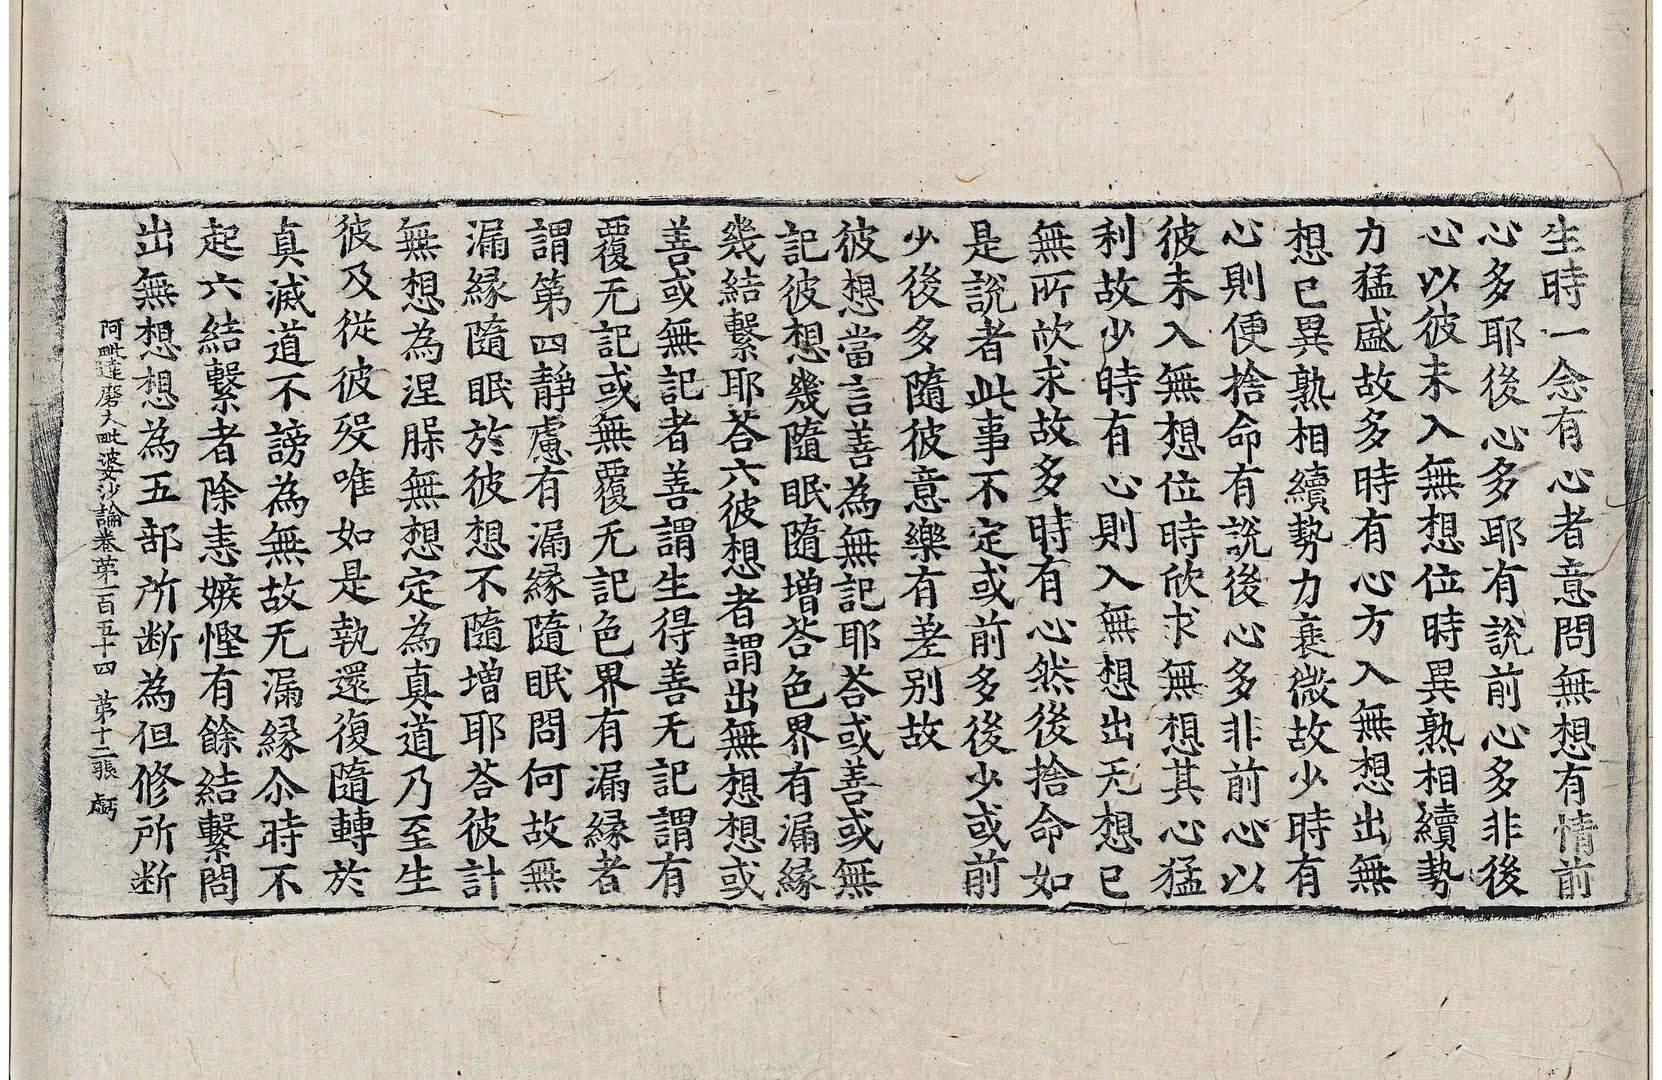 生時一念有心者意問無想有情前
心多耶後心多耶有說前心多非後
心以彼未入無想位時異熟相續勢
力猛盛故多時有心方入無想出無
想已異熟相續勢力衰微故少時有
心則便捨命有說後心多非前心以
彼未入無想位時欣求無想其心猛
利故少時有心則入無想出无想已
無所欣求故多時有心然後捨命如
是說者此事不定或前多後少或前
少後多隨彼意樂有差別故
彼想當言善為無記耶荅或善或無
記彼想幾隨眠隨增荅色界有漏緣
幾結繫耶荅六彼想者謂出無想想或
善或無記者善謂生得善无記謂有
覆无記或無覆无記色界有漏緣者
謂第四靜慮有漏緣隨眠問何故無
漏緣隨眠於彼想不隨增耶荅彼計
無想為涅槃無想定為真道乃至生
彼及從彼歿唯如是執還復隨轉於
真滅道不謗為無故无漏緣尒時不
起六結繫者除恚嫉慳有餘結繫問
出無想想為五部所斷為但修所斷
阿毗達磨大毗婆沙論卷第一百五十四 第十二張 虧